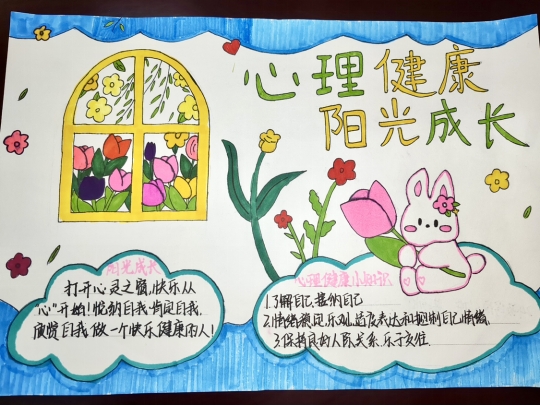 心理健康
阳光成长
阳光成长
打开心灵之窗,快乐从
“心”开始!悦纳自我,肯定自我,
欣赏自我,做一个快乐、健康的人!
心理健康小知识
1.了解自己,接纳自己
2.情绪稳定、乐观,适度表达和控制自己情绪
3.保持良好人际关系,乐于交往